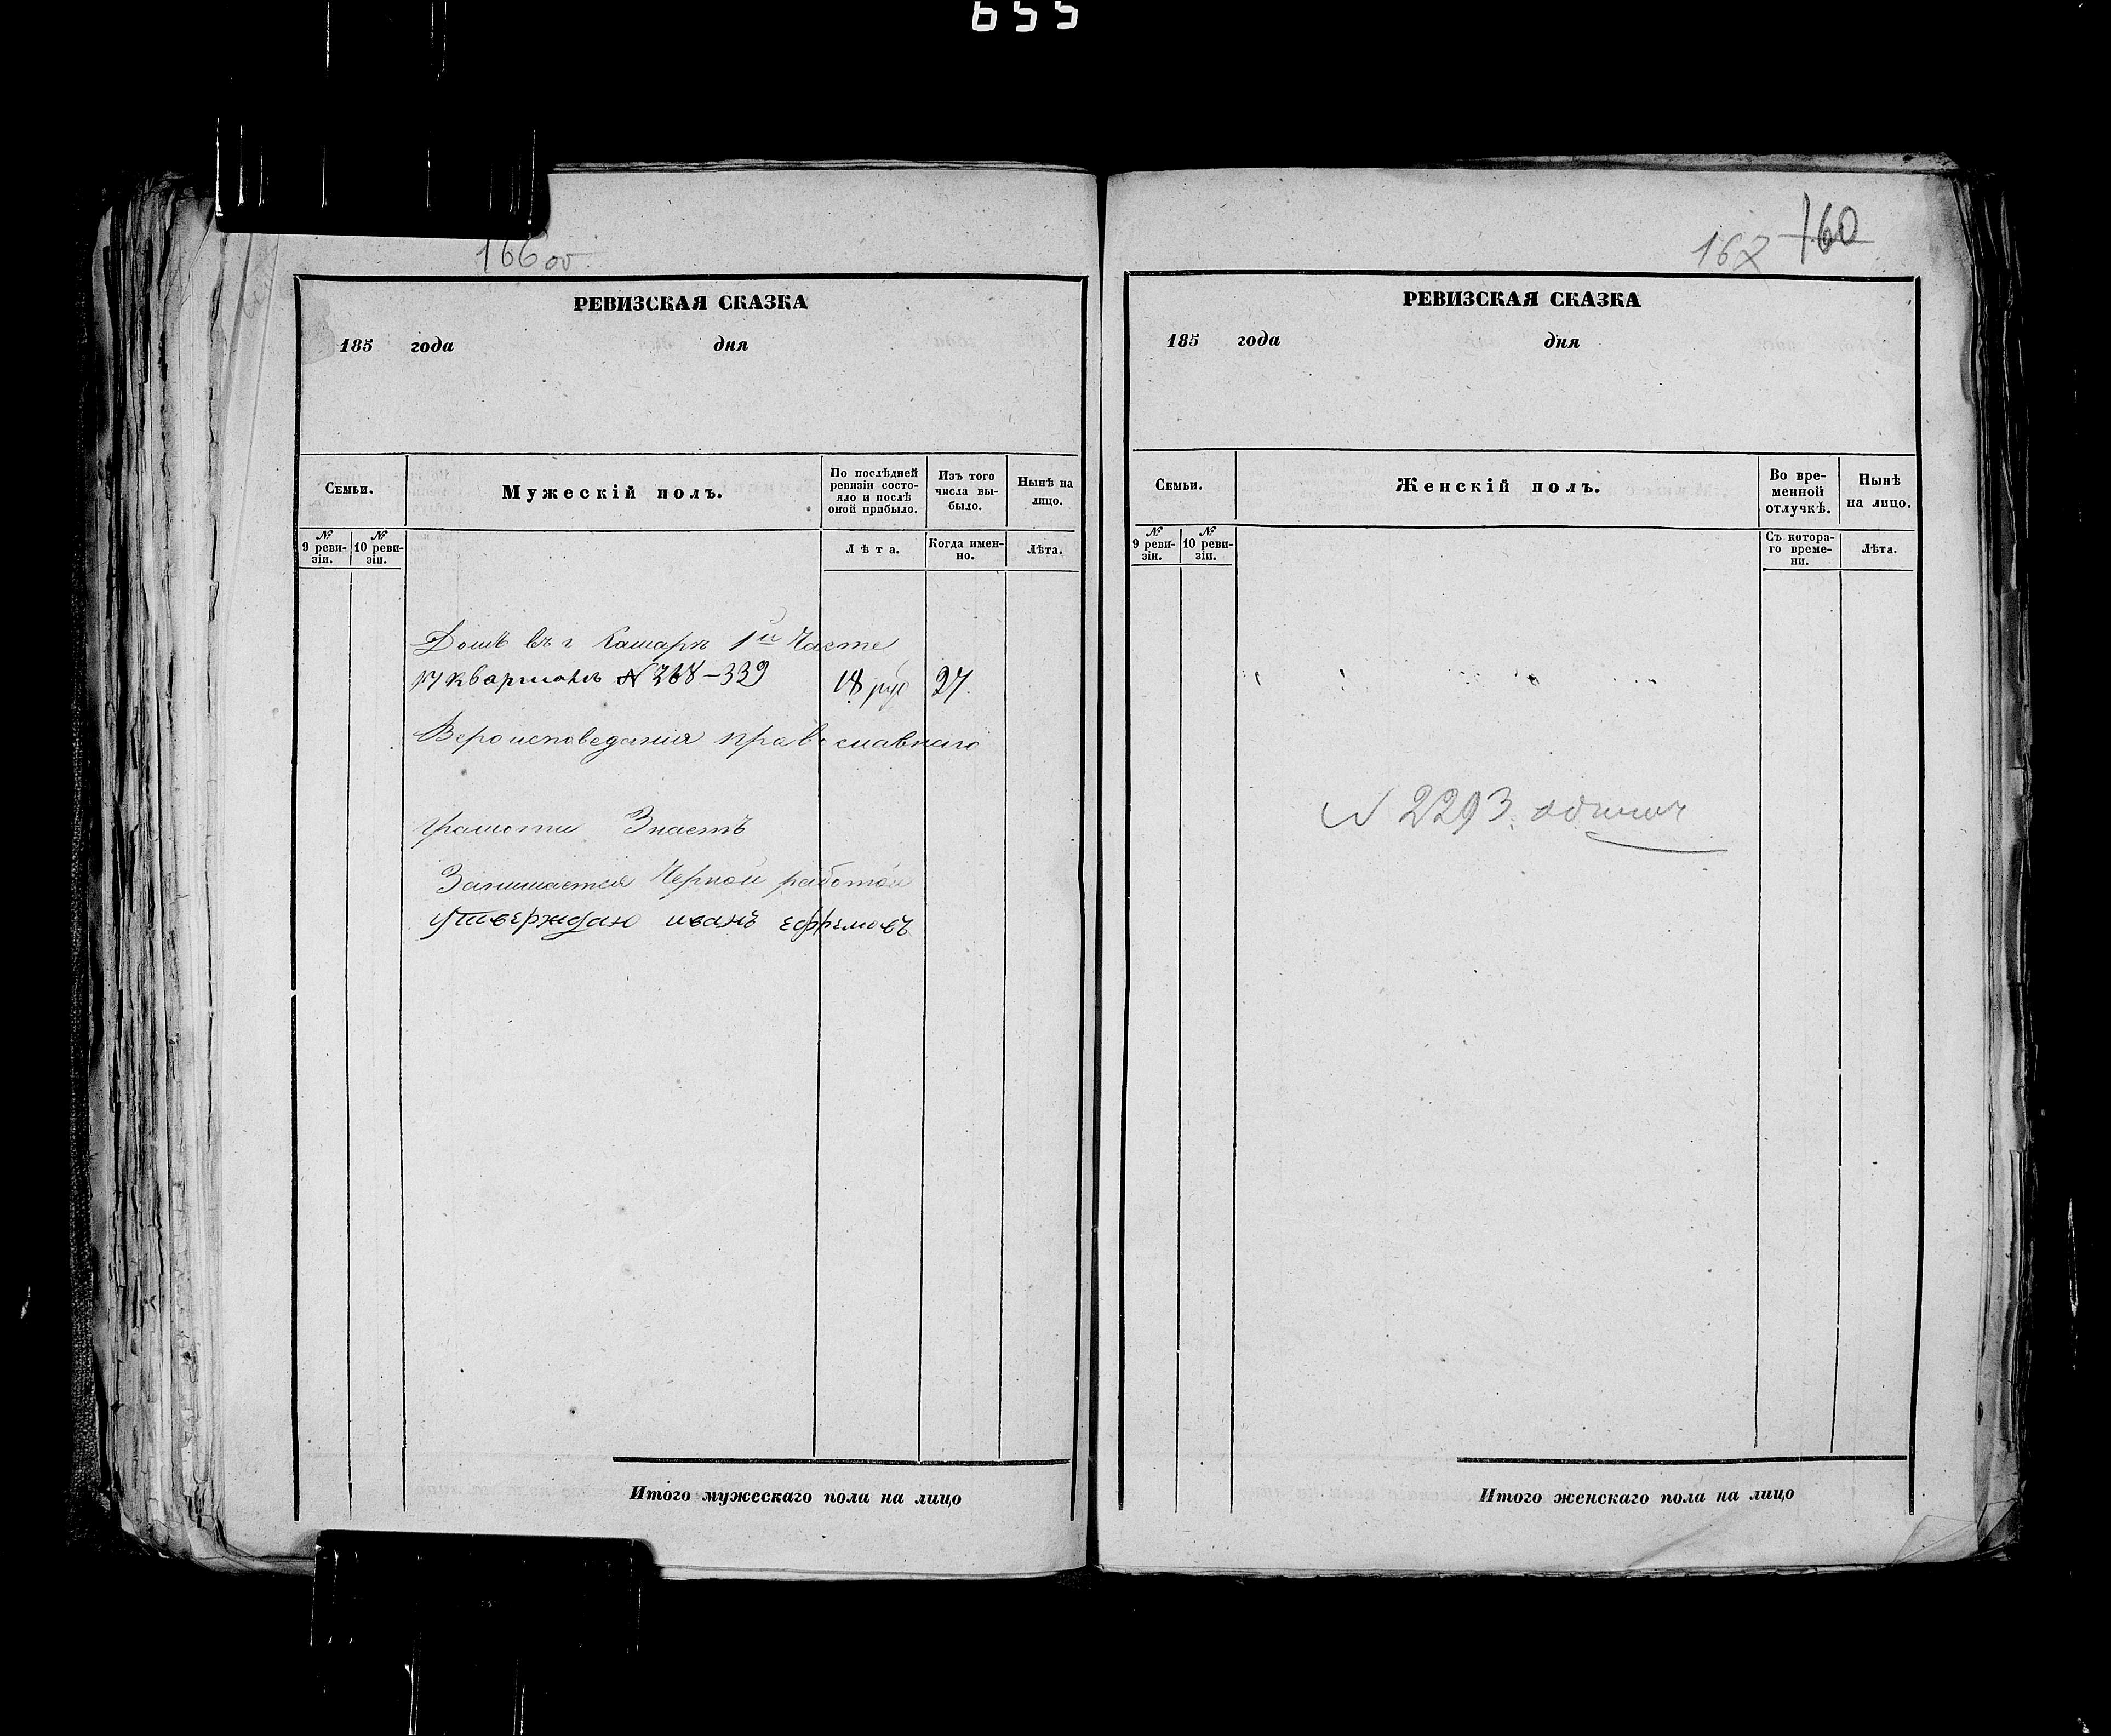 655
166 об
РЕВИЗСКАЯ СКАЗКА
185 года дня
Семьи.
Мужескій полъ.
По послѣдней ревизіи состояло и послѣ оной прибыло.
Изъ того числа выбыло.
Нынѣ на лицо.
№ 9 ревизіи.
№ 10 ревизіи.
Лѣта.
Когда именно.
Лѣта.
Домъ въ г Самарѣ 1й Части
17 кварталъ № 338-339 18 руб 27.
Вероисповедания православнаго
Грамоти Знаетъ
Занимается Черной работой
Утверждаю иванъ ефремовъ
Итого мужескаго пола на лицо
167 160
РЕВИЗСКАЯ СКАЗКА
185 года дня
Семьи.
Женскій полъ.
Во временной отлучкѣ.
Нынѣ на лицо.
№ 9 ревизіи.
№ 10 ревизіи.
Съ котораго времени.
Лѣта.
N 2293
Итого женскаго пола на лицо